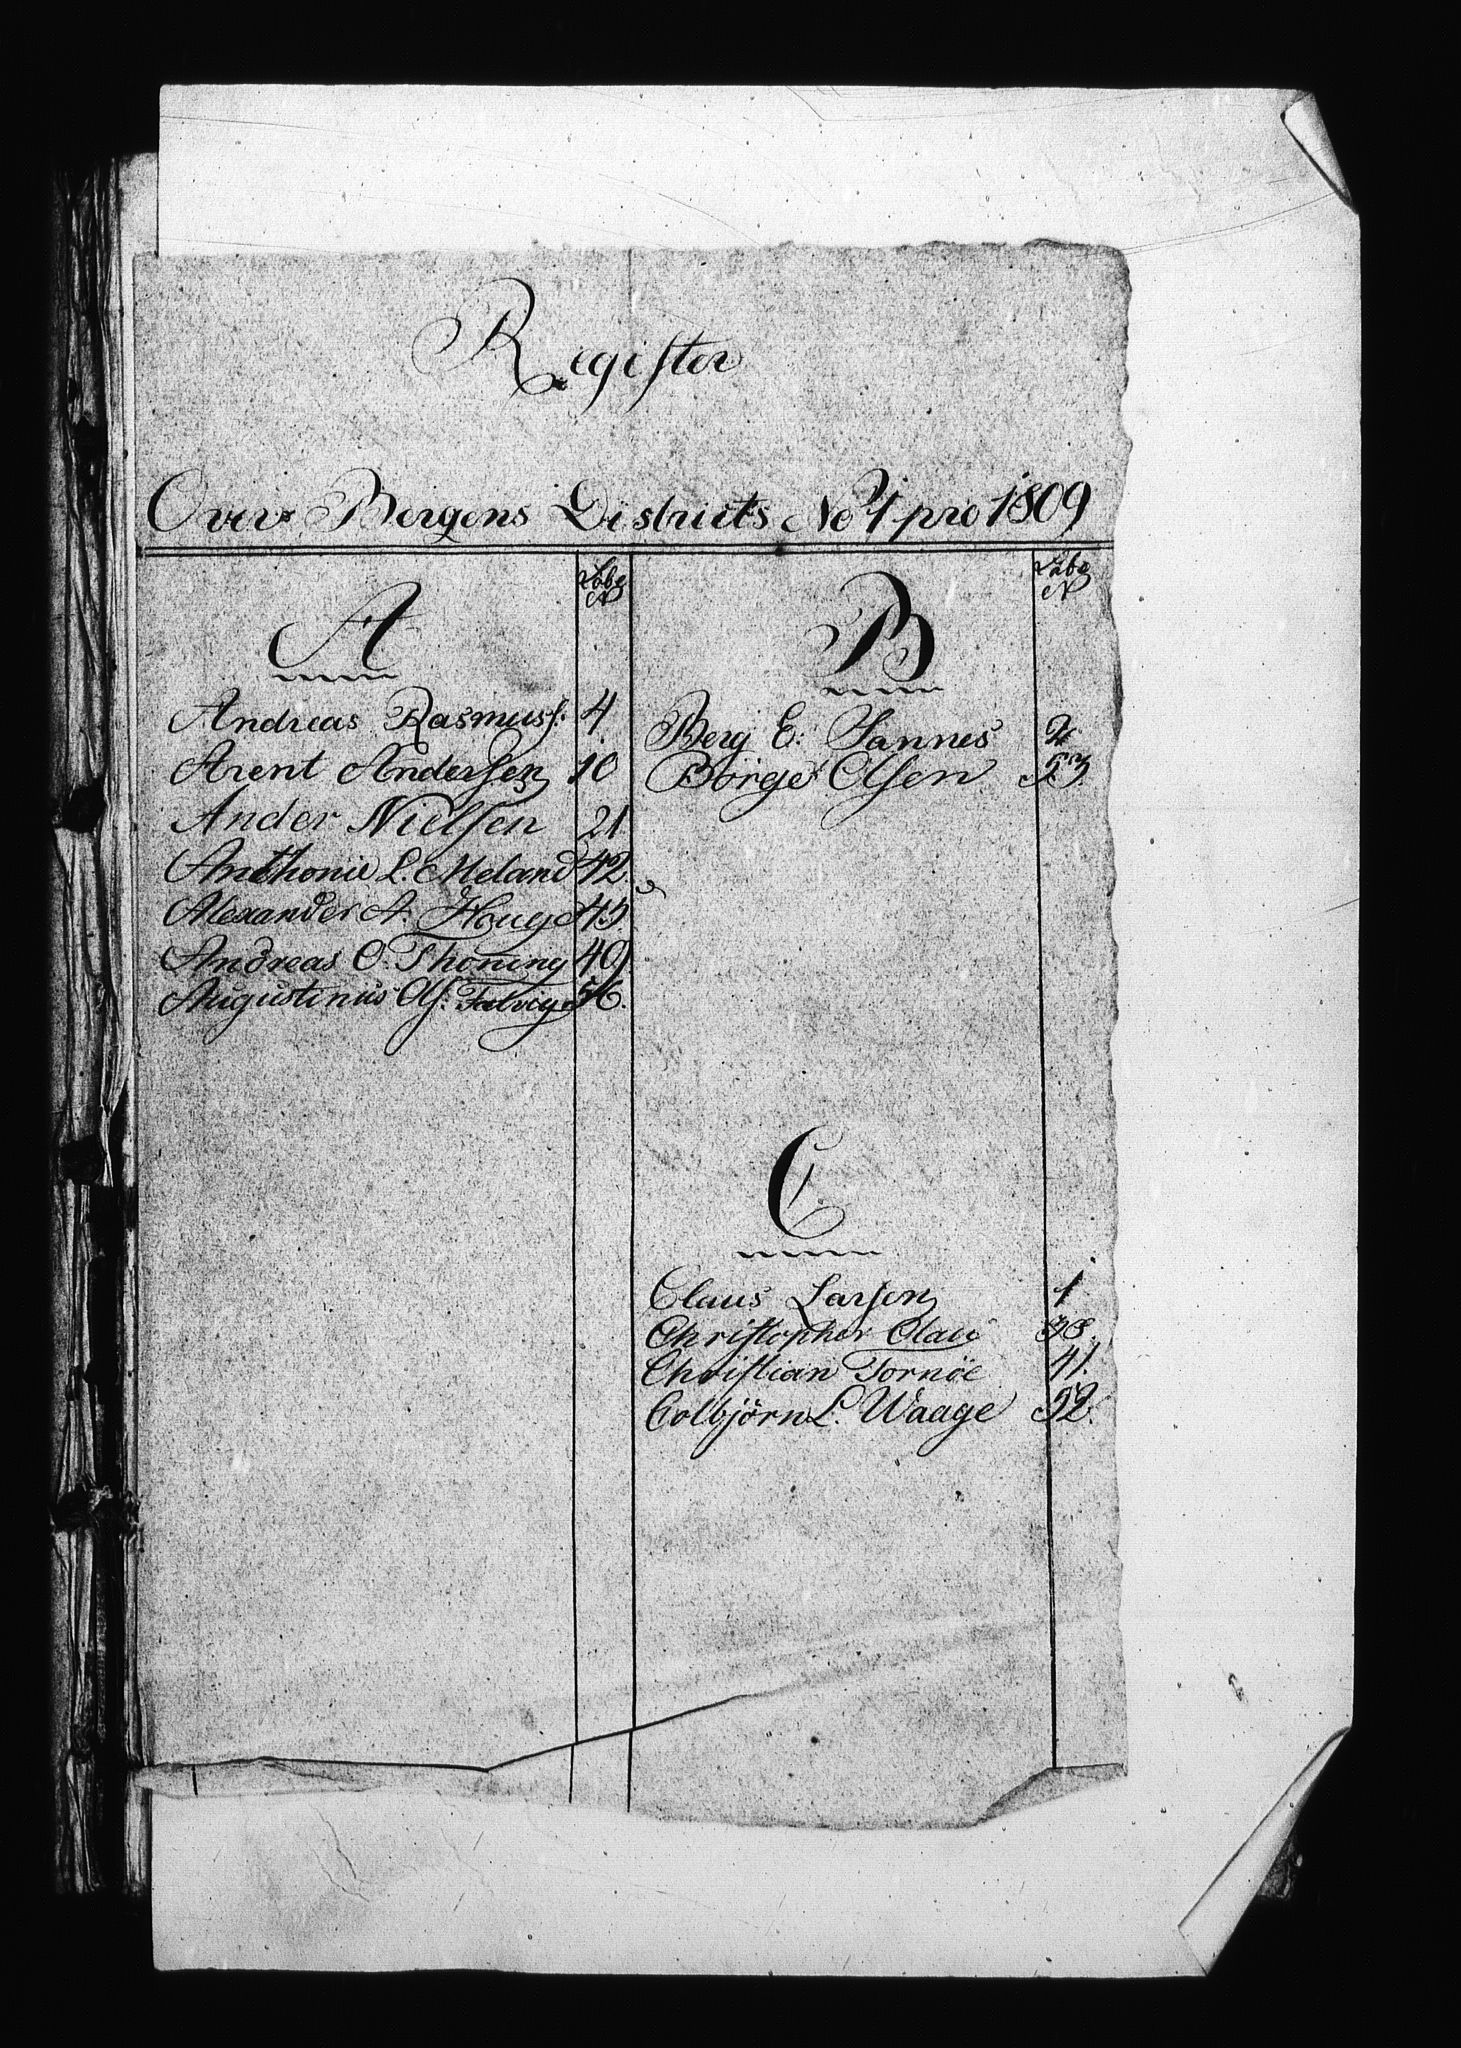 Register
Over Bergens Districts No 1 pro 1809
A
Løbe
N
Andreas Rasmuss: 4
Arent Andersen 10
Ander Nielsen 21
Anthonie L. Meland 42.
Alexander A. Houge 45.
Andreas O. Thoning 49.
Augustinus Ols: 56.
B
Løbe
N
Berg E: Sannes
Børge Olsen 53.
C
Claus Larsen 1
Christopher
Christian Tornöe 41.
Colbjörn L. Waage 52.